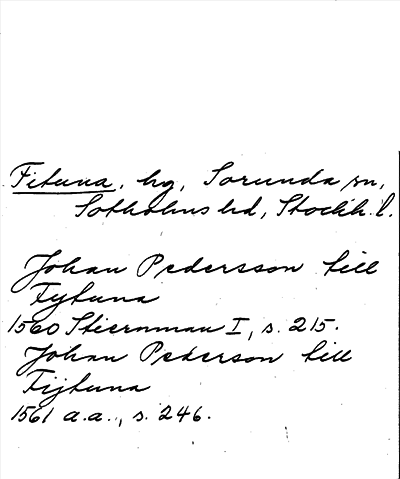 Fituna, hg, Sorunda sn,
Sotholms hd, Stockh. l.
Johan Pedersson till
Fytuna
1560 Stiernman I, s. 215.
Johan Pederson till
Fijtuna
1561 a.a., s. 246.